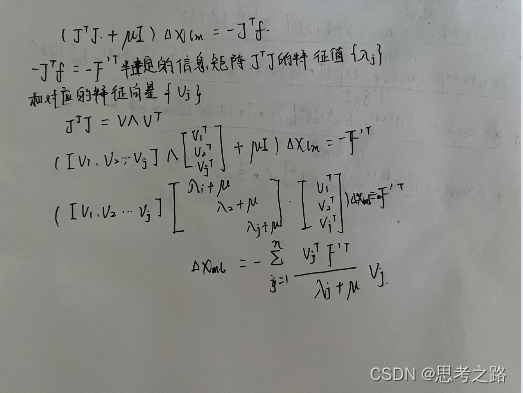 (JᵀJ + μI) Δxlm = -Jᵀf.
-Jᵀf = -F'ᵀ 半定的信息矩阵 JᵀJ的特征值{λj}
和对应的特征向量{Vj}
JᵀJ = VΛVᵀ
([V₁.V₂…Vj] Λ [V₁ᵀ V₂ᵀ Vjᵀ] + μI) Δxlm = -F'ᵀ
([V₁.V₂…Vj] [λ₁+μ λ₂+μ λj+μ] · [V₁ᵀ V₂ᵀ Vjᵀ]) Δxlm = -F'ᵀ
Δxlm = - ∑ⁿj=1 VjᵀF'ᵀ / (λj+μ) Vj
CSDN @思考之路